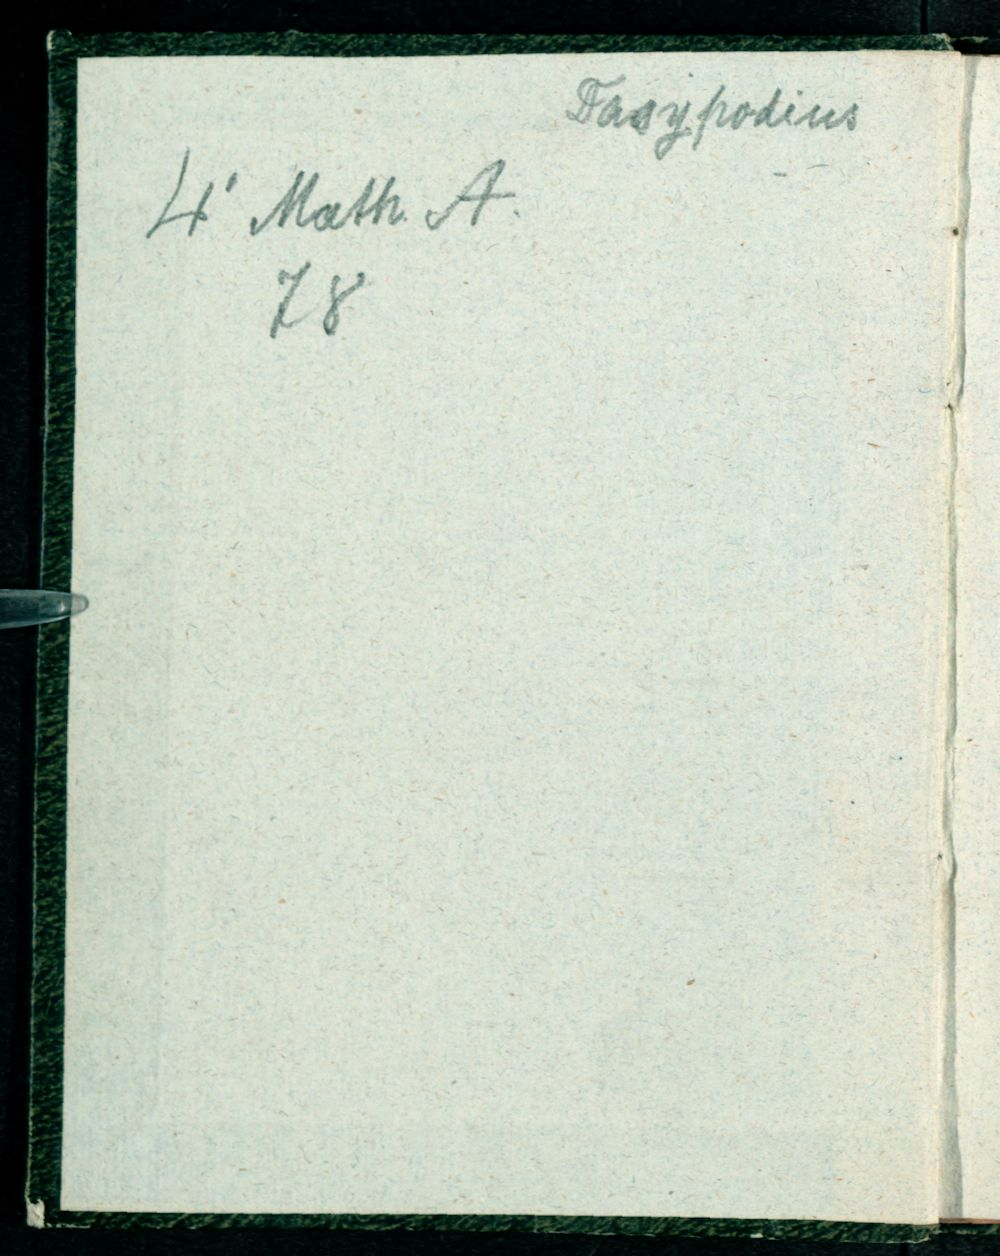 Dasypodius
4' Math. A.
78